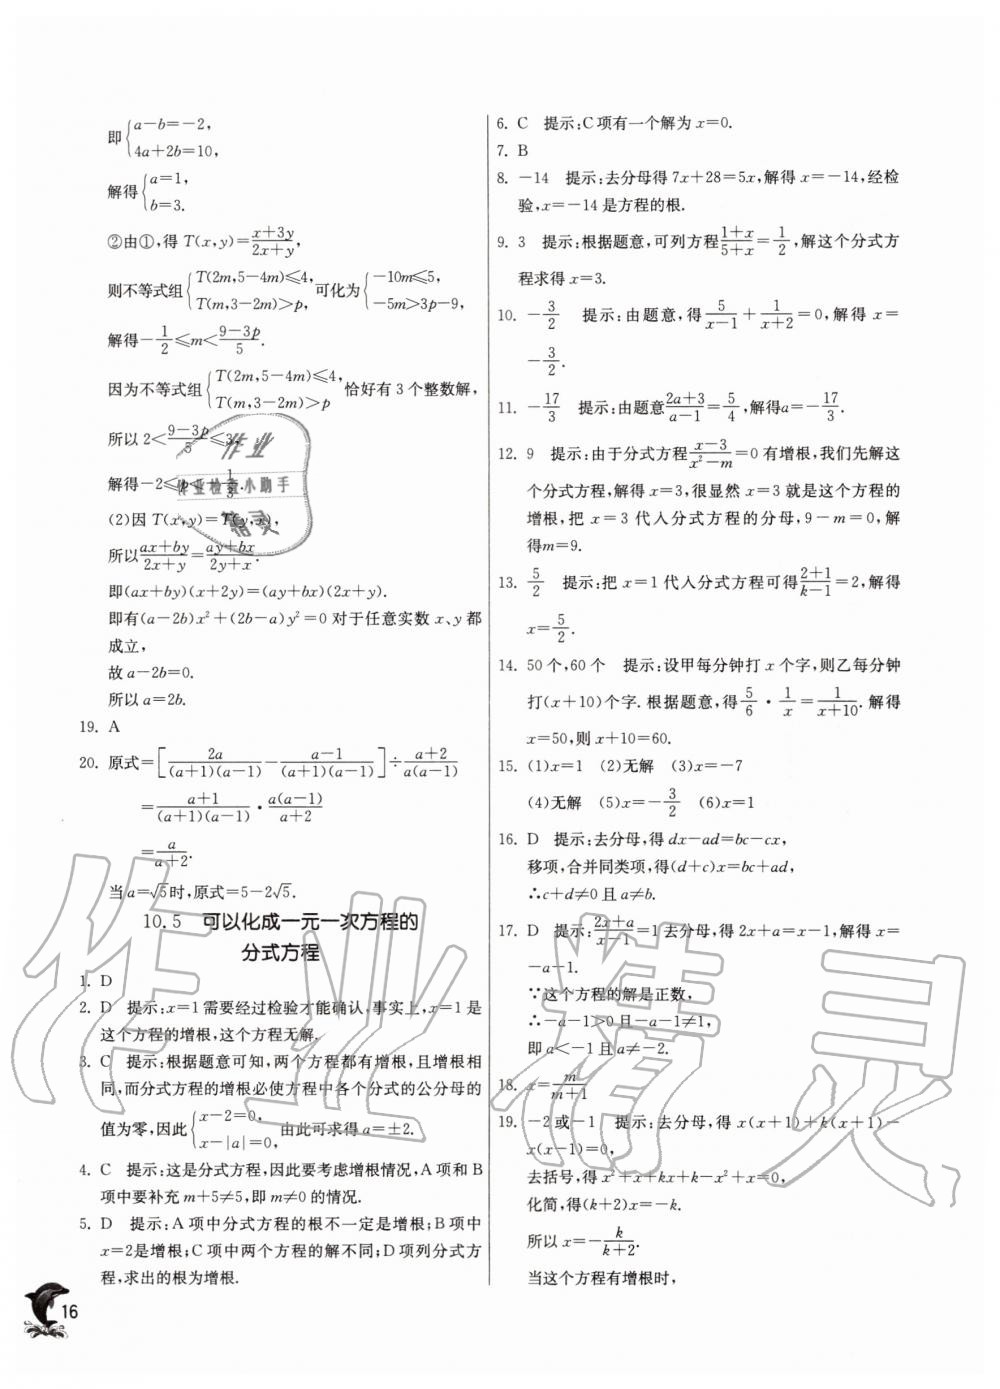 即{a-b=-2,
4a+2b=10,
解得{a=1,
b=3.
②由①,得 T(x,y)=(x+3y)/(2x+y),
则不等式组{T(2m,5-4m)≤4, T(m,3-2m)>p, 可化为{-10m≤5, -5m>3p-9,
解得-1/2≤m<(9-3p)/5.
因为不等式组{T(2m,5-4m)≤4, T(m,3-2m)>p 恰好有3个整数解,
所以2<(9-3p)/5≤3,
解得-2≤p<-1/3.
(2)因 T(x,y)=T(y,x),
所以(ax+by)/(2x+y)=(ay+bx)/(2y+x).
即(ax+by)(x+2y)=(ay+bx)(2x+y).
即有(a-2b)x²+(2b-a)y²=0 对于任意实数 x、y 都
成立,
故 a-2b=0.
所以 a=2b.
19. A
20. 原式=[2a/((a+1)(a-1))-(a-1)/((a+1)(a-1))]÷(a+2)/(a(a-1))
=(a+1)/((a+1)(a-1))·a(a-1)/(a+2)
=a/(a+2).
当 a=√5时,原式=5-2√5.
10.5 可以化成一元一次方程的
分式方程
1. D
2. D 提示:x=1需要经过检验才能确认,事实上,x=1是
这个方程的增根,这个方程无解.
3. C 提示:根据题意可知,两个方程都有增根,且增根相
同,而分式方程的增根必使方程中各个分式的公分母的
值为零,因此{x-2=0, x-|a|=0, 由此可求得 a=±2.
4. C 提示:这是分式方程,因此要考虑增根情况,A项和B
项中要补充 m+5≠5,即 m≠0 的情况.
5. D 提示:A项中分式方程的根不一定是增根;B项中
x=2是增根;C项中两个方程的解不同;D项列分式方
程,求出的根为增根.
16
6. C 提示:C项有一个解为 x=0.
7. B
8. -14 提示:去分母得 7x+28=5x,解得 x=-14,经检
验,x=-14 是方程的根.
9. 3 提示:根据题意,可列方程(1+x)/(5+x)=1/2,解这个分式方
程求得 x=3.
10. -3/2 提示:由题意,得5/(x-1)+1/(x+2)=0,解得 x=
-3/2.
11. -17/3 提示:由题意(2a+3)/(a-1)=5/4,解得a=-17/3.
12. 9 提示:由于分式方程(x-3)/(x²-m)=0有增根,我们先解这
个分式方程,解得 x=3,很显然 x=3 就是这个方程的
增根,把 x=3 代入分式方程的分母,9-m=0,解
得m=9.
13. 5/2 提示:把 x=1代入分式方程可得(2+1)/(k-1)=2,解得
x=5/2.
14. 50个,60个 提示:设甲每分钟打 x 个字,则乙每分钟
打(x+10)个字.根据题意,得5/6·1/x=1/(x+10).解得
x=50,则 x+10=60.
15. (1)x=1 (2)无解 (3)x=-7
(4)无解 (5)x=-3/2 (6)x=1
16. D 提示:去分母,得 dx-ad=bc-cx,
移项,合并同类项,得(d+c)x=bc+ad,
∴c+d≠0且 a≠b.
17. D 提示:(2x+a)/(x-1)=1去分母,得 2x+a=x-1,解得 x=
-a-1.
∵这个方程的解是正数,
∴-a-1>0且-a-1≠1,
即 a<-1 且 a≠-2.
18. x=m/(m+1)
19. -2或-1 提示:去分母,得 x(x+1)+k(x+1)-
x(x-1)=0,
去括号,得 x²+x+kx+k-x²+x=0,
化简,得(k+2)x=-k.
所以 x=-k/(k+2).
当这个方程有增根时,
作业
作业检查小助手
精灵
作业精灵